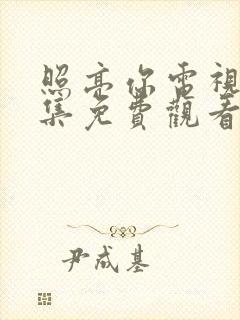 照亮你電視
集免費觀看
尹成基